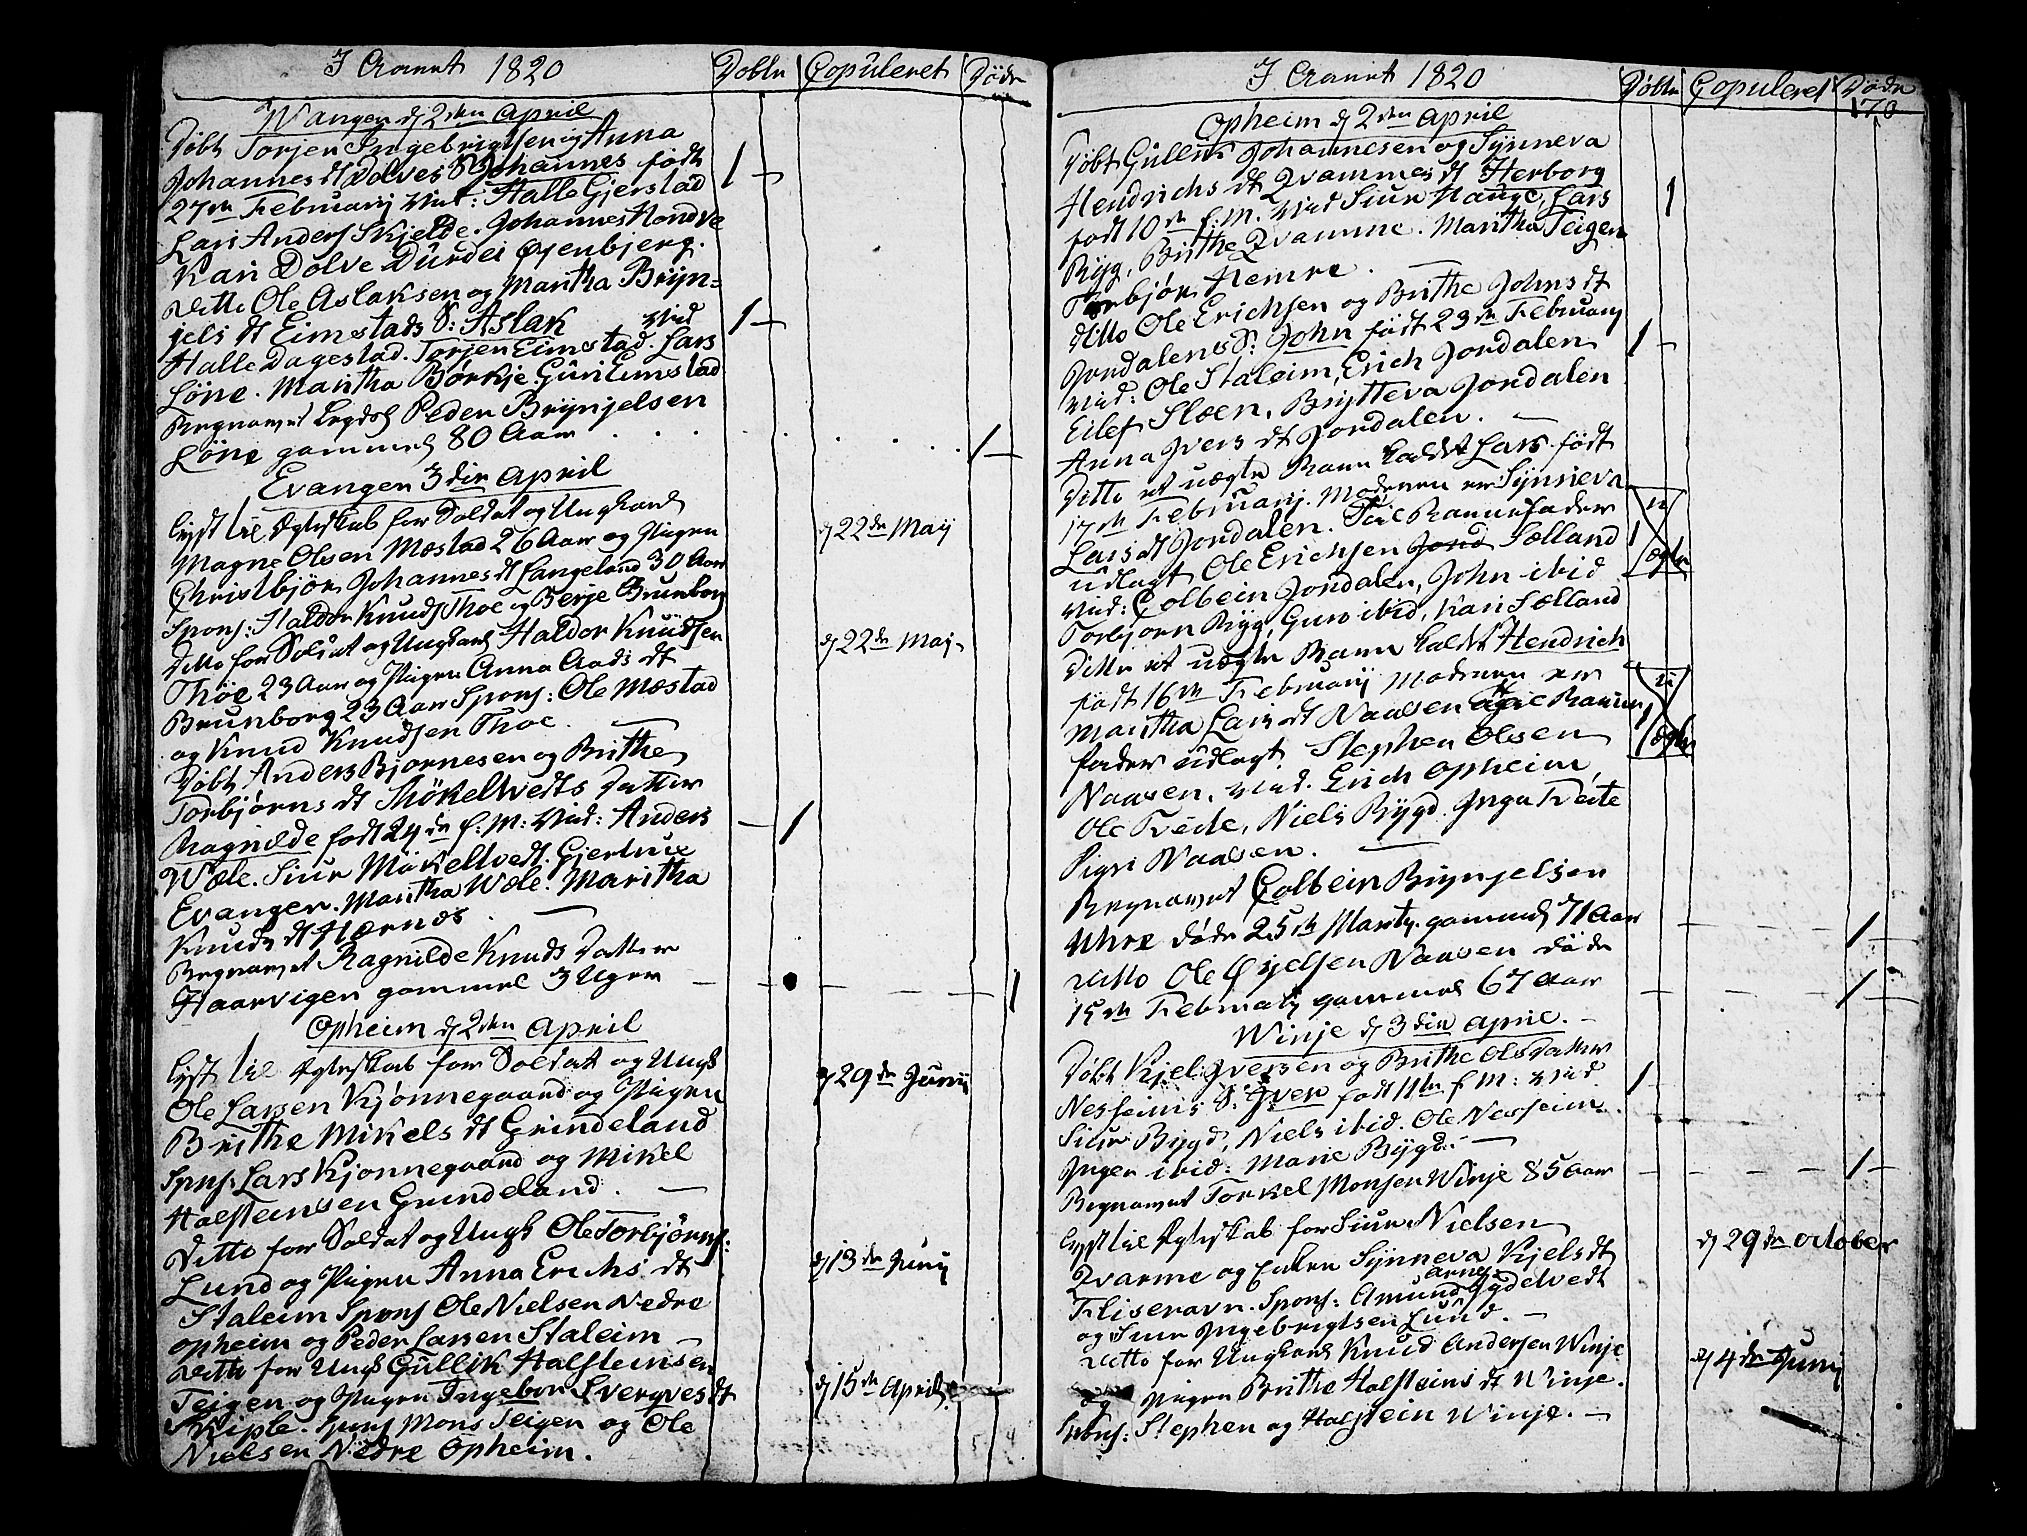 I Aaret 1820 Døbte Copuleret Døde
Wangen d 2den April
Døbt Torjen Ingebrigtsen og Anna
Johannes dt Dolves S. Johannes født
27de Februarij Vid: Halle Gjerstad 1
Lars Anders Skjelde. Johannes Hondve
Kari Dolve Durdei Øyenbjerg.
Ditto Ole Aslaksen og Maritha Brÿn=
jels dt Eimstads S: Aslak Vid 1
Halle Dagestad. Torjen Eimstad. Lars
Løne. Maritha Børkje. Guri Eimstad
Begravet Peder Brÿnjelsen
Løne gammel 80 Aar 1
Evanger 3die April
Lyst til Ægteskab for Soldat og Ungkarl
Magne Olsen Mæstad 26 Aar og Pigen d 22de Maij
Christbjør Johannes dt Langeland 30 Aar
Spons: Haldor Knuds Thoe og Berje Brunborg
Ditto for Soldat og Ungkarl Haldor Knudsen d 22de Maij
Thøe 23 Aar og Pigen Anna Aads dt
Brunborg 23 Aar Spons: Ole Mæstad
og Knud Knudsen Thoe.
Døbt Anders Bjørnesen og Brithe
Torbjørns dt Møkeltvedts Datter
Ragnilde født 24de f: M: Vid: Anders 1
Wæle. Siur Mökeltvedt. Gjertrue
Evanger. Maritha Wæle. Maritha
Knuds dt Hærnes
Begravet Ragnilde Knuds Datter
Haarvigen gammel 3 Uger 1
Opheim d 2den April
Lyst til Ægteskab for Soldat og Ungk d 29de Junij
Ole Larsen Kjønnegaard og Pigen
Brithe Mikels dt Grindeland
Spons: Lars Kjønnegaard og Mikel
Halsteinsen Grindeland.
Ditto for Soldat og Ungk Ole Torbjørns:
Lund og Pigen Anna Erichs dt d 13de Junij
Staleim Spons Ole Nielsen Nedre
Opheim og Peder Larsen Staleim
Ditto for Ungk Gullik Halsteinsen
Teigen og Pigen Ingebor Sverqves dt d 15de April
Skiple. Spons Mons Teigen og Ole
Nielsen Nedre Opheim.
I Aaret 1820 Døbte Copuleret Døde
170
Opheim d 2den April
Døbt Gullik Johannesen og Sÿnneva
Hendrichs dt Qvammes dt Herborg
født 10de f. M. Vid Siur Hauge, Lars 1
Rÿg, Brithe Qvamme. Maritha Teigen
Torbjør Hemre.
ditto Ole Erichsen og Brithe Johns dt
Jordalens S: John født 23de Februarij
Vid: Ole Staleim, Erich Jordalen 1
Eilef Slæen, Brytteva Jordalen
Anna Ivers dt Jordalen.
Ditto et uægte Barn kaldet Lars født
17de Februarij. Moderen er Sÿnneva u
Lars dt Jordalen. Til Barnefader 1
udlagt Ole Erichsen Jord Sælland ægte
Vid: Colbein Jordalen, John ibid
Torbjorn Rÿg, Guro ibid, Kari Sælland
Ditto et uægte Barn kaldet Hendrich
født 16de Februarij Moderen er u
Maritha Lars dt Naasen Til Barne 1
fader udlagt Stephen Olsen ægte
Naasen. Vid. Erich Opheim
Ole Trede, Niels Bÿgd. Inga Trede
Sigri Naasen.
Begravet Colbein Brÿnjelsen
Uhre døde 25de Marty gammel 71 Aar 1
ditto Ole Naasen døde
15de Februarij gammel 67 Aar 1
Winje d 3die April.
Døbt Kjel Iversen og Brithe Olsdatter
Nesheims S: Iver født 11te f M: Vid 1
Siur Bÿgd, Niels ibid. Ole Nesheim
Inger ibid: Marie Bÿgd.
Begravet Torkel Monsen Winje 85 Aar 1
Lyst til Ægteskab for Siur Nielsen
Qvarme og Enken Sÿnneva Kjels dt d 29de October
Fliseravn. Spons: Amund Arnes Gydelvedt
og Siur Ingebrigtsen Lund.
Ditto for Ungkarl Knud Andersen Winje
og Pigen Brithe Halsteins dt Winje. d 4de Junij
Spons: Stephen og Halstein Winje.